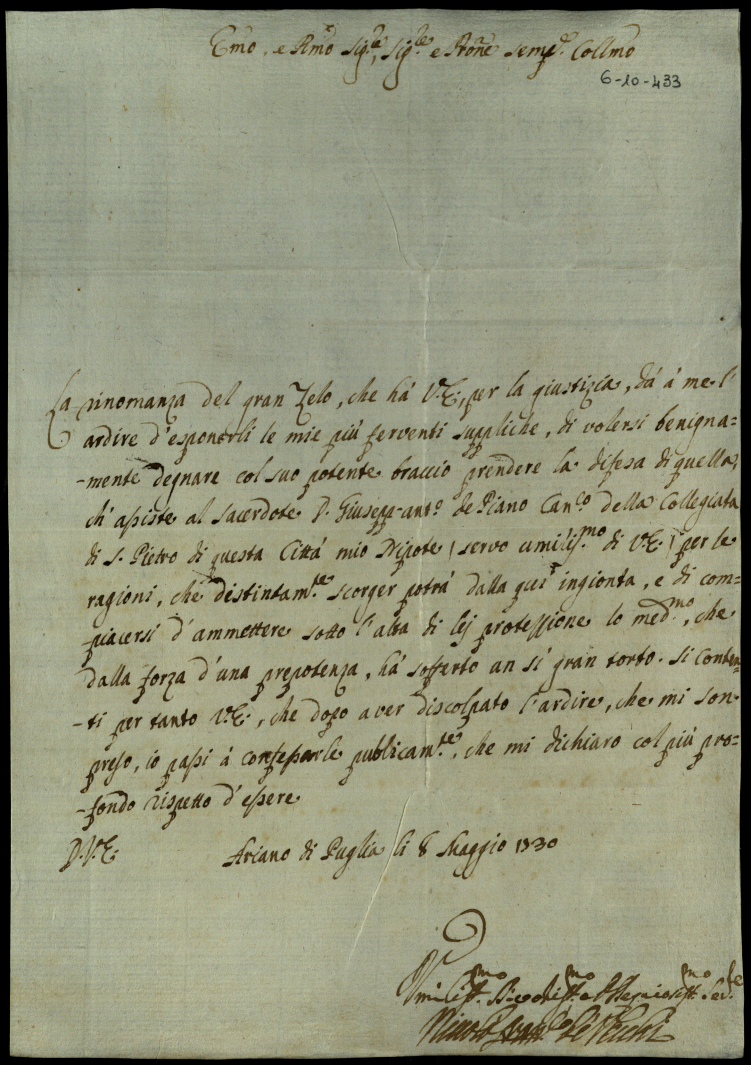 Emo. e Rmo Sig.re, Sig.re e Prõne Semp.e Collmo
6-10-433
La rinomanza del gran Zelo, che há V.E., per la giustizia, dá á me l'
ardire d'esponerli le mie piú ferventi suppliche, di volersi benigna=
-mente degnare col suo potente braccio prendere la difesa di quella,
ch' assiste al Sacerdote D. Giusepp-ant.o de Piano Can.co della Collegiata
di S. Pietro di questa Cittá mio Nipote (servo umilis.mo di V.E.) per le
ragioni, che distintam.te scorger potrá dalla qui ingionta, e di com=
-piacersi d'ammettere sotto l'alta di lej protezzione lo med.mo, che
dalla forza d'una prepotenza, há sofferto un sí gran torto. Si conten=
-ti per tanto V.E., che dopo aver discolpato l'ardire, che mi son
preso, io passi á confessarle publicam.te, che mi dichiaro col piú pro=
-fondo rispetto d'essere
D.V.E.
Ariano di Puglia li 8 Maggio 1730
Umiliss.mo